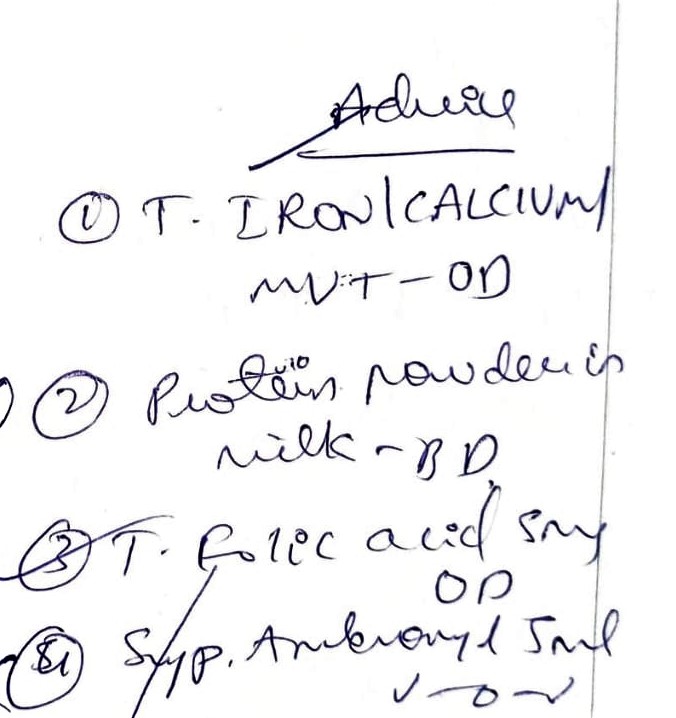 Advice
① T. IRON/CALCIUM/
MVT - OD
② Protein powder in
milk - BD
③ T. Folic acid 5mg
OD
Syp. Ambroxyl 5ml
✓ - o - ✓